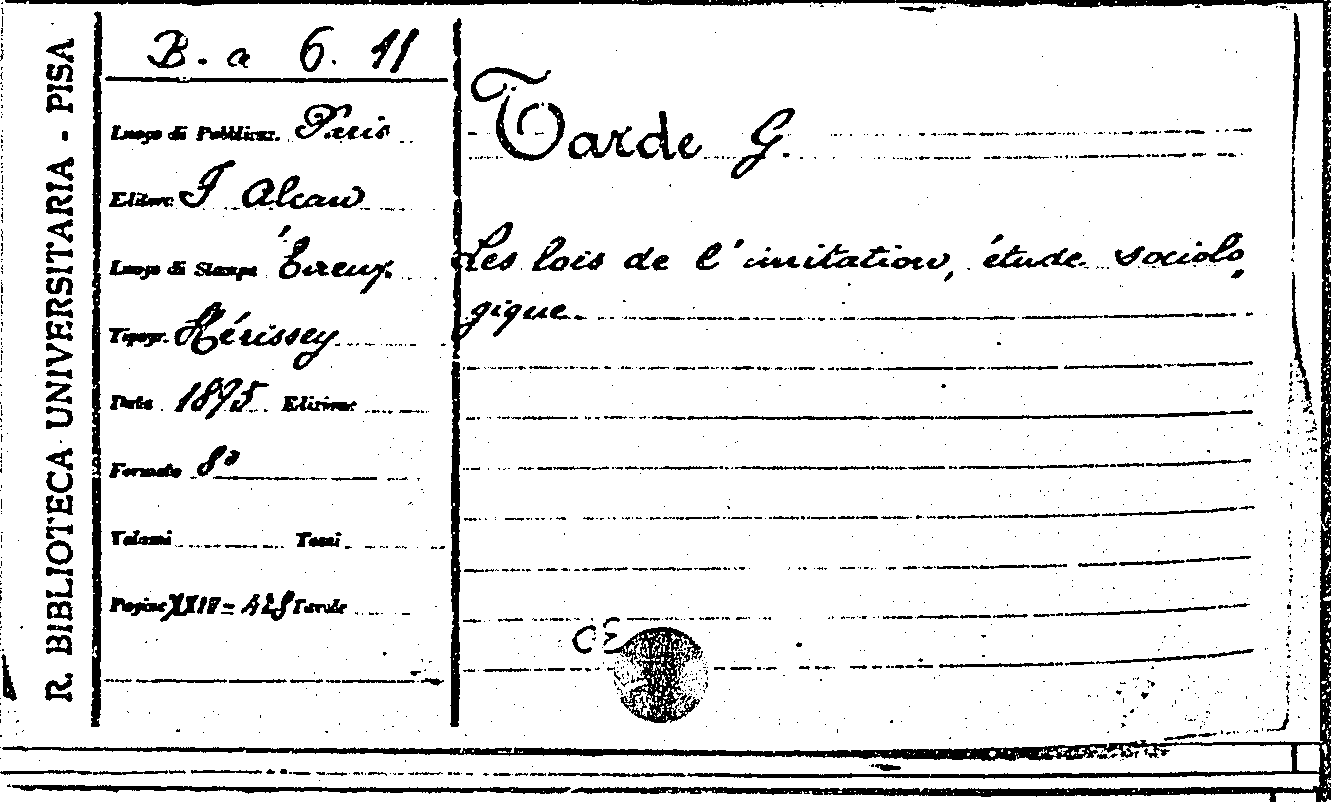 R. BIBLIOTECA UNIVERSITARIA - PISA
B. a 6. 11
Luogo di Pubblicaz. Paris
Editore F Alcan
Luogo di Stampa Évreux
Tipogr. Hérissey
Data 1895 Edizione
Formato 8º
Volumi Tomi
Pagine XXIV - 428 Tavole
Tarde G.
Les lois de l'imitation, étude sociolo
gique